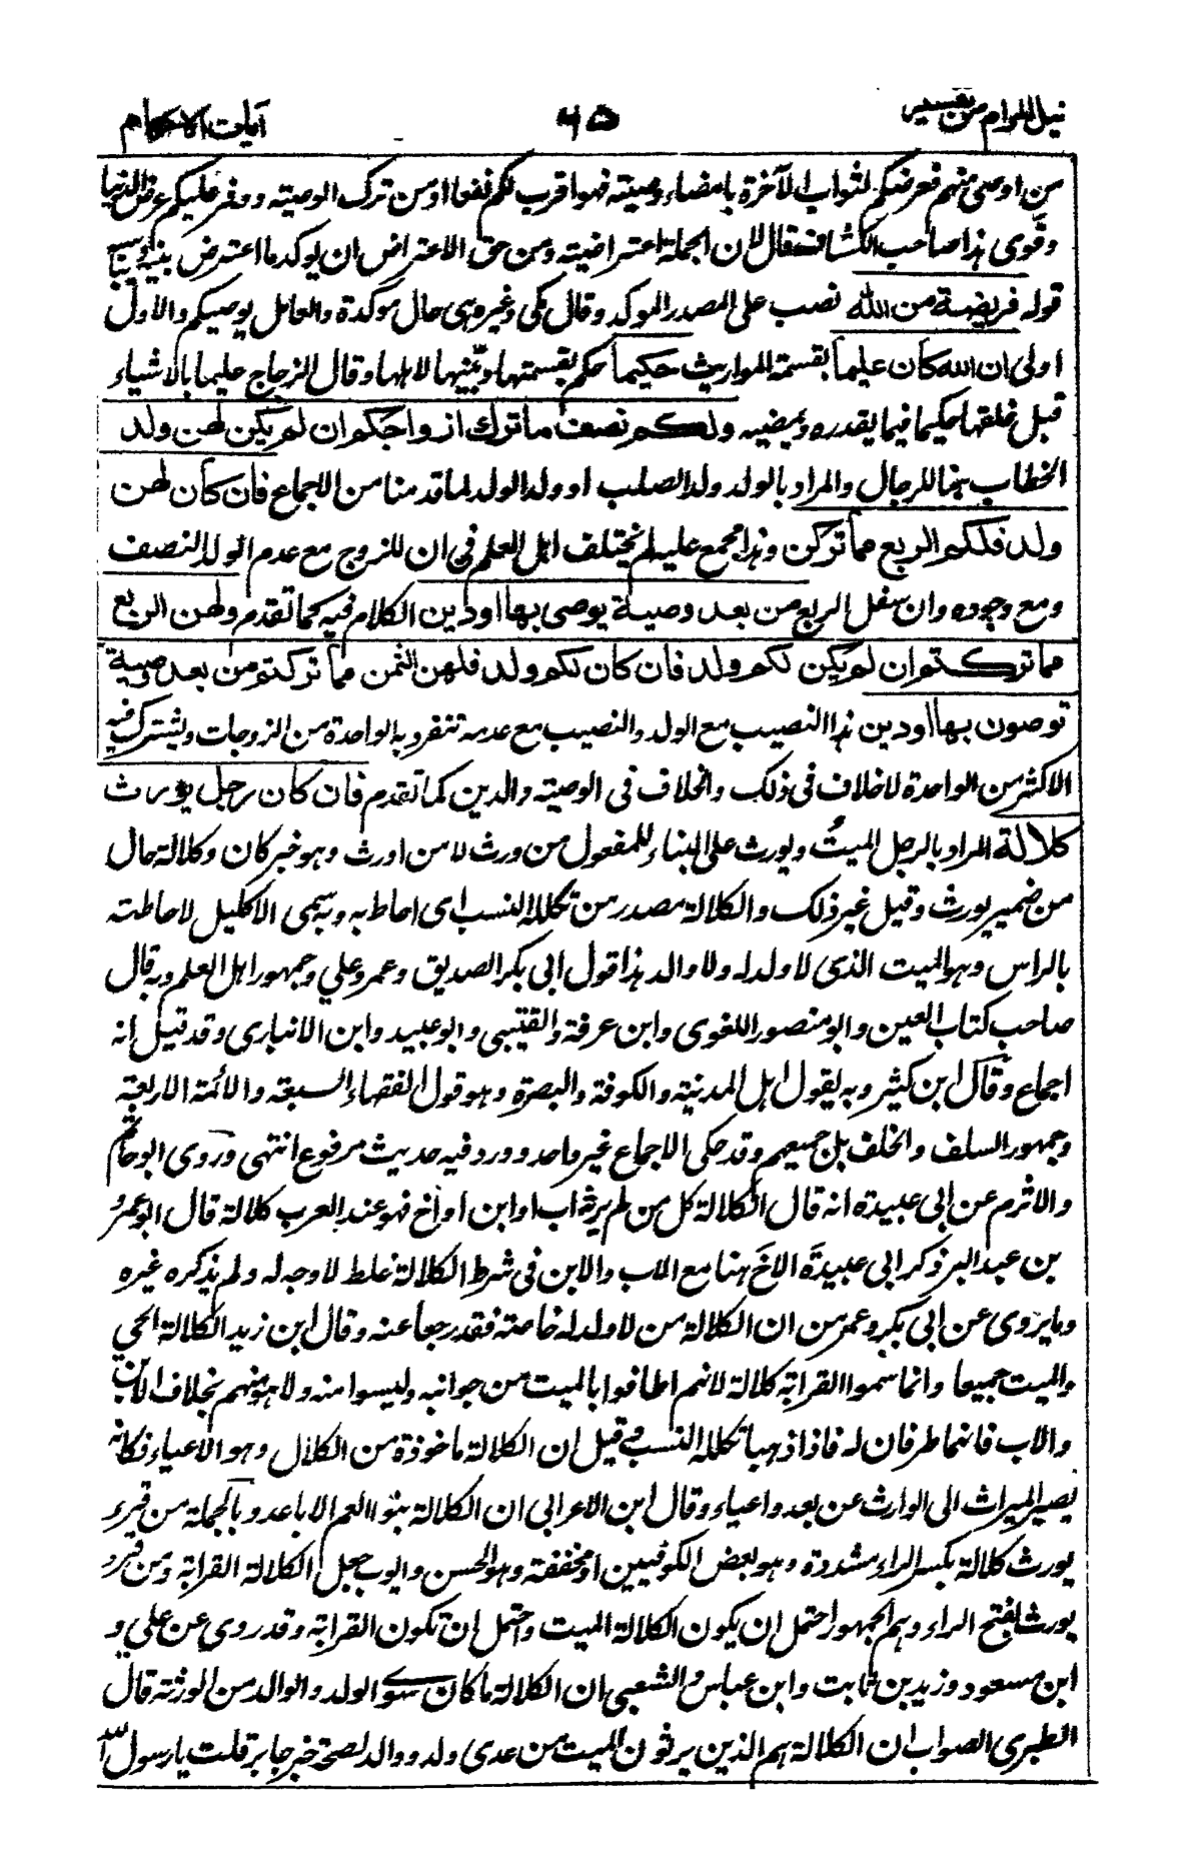 نيل المرام من تفسير ٦٥ آيات الاحكام
من اوصى منهم فعرضكم لثواب الآخرة بامضاء وصيته فهو اقرب لكم نفعا او من ترك الوصيته ووفر عليكم عرض الدنيا
وقوى هذا صاحب الكشاف فقال لان الجملة اعتراضيته ومن حق الاعتراض ان يوكد ما اعترض بينه
قوله فريضة من الله نصب على المصدر الموكد وقال مكى وغيره هى حال موكدة والعامل يوصيكم والاول
اولى ان الله كان عليما بقسمة المواريث حكيما حكم بقسمتها وبينها لاهلها وقال الزجاج عليما بالاشياء
قبل خلقها حكيما فيما يقدره ويمضيه ولكم نصف ما ترك ازواجكم ان لم يكن لهن ولد
الخطاب هنا للرجال والمراد بالولد ولد الصلب او ولد الولد لما قدمنا من الاجماع فان كان لهن
ولد فلكم الربع مما تركن وهذا مجمع عليه لم يختلف اهل العلم فى ان للزوج مع عدم الولد النصف
ومع وجوده وان سفل الربع من بعد وصية يوصى بها او دين الكلام فيه كما تقدم ولهن الربع
مما تركتم ان لم يكن لكم ولد فان كان لكم ولد فلهن الثمن مما تركتم من بعد وصية
توصون بها او دين هذا النصيب مع الولد والنصيب مع عدمه تنفرد به الواحدة من الزوجات ويشترك فيه
الاكثر من الواحدة لا خلاف فى ذلك والخلاف فى الوصيته والدين كما تقدم فان كان رجل يورث
كلالة المراد بالرجل الميت ويورث على البناء للمفعول من ورث لا من اورث وهو خبر كان وكلالة حال
من ضمير يورث وقيل غير ذلك والكلالة مصدر من تكلله النسب اى احاط به وبه سمى الاكليل لاحاطته
بالراس وهو الميت الذى لا ولد له ولا والد هذا قول ابى بكر الصديق وعمر وعلي وجمهور اهل العلم وبه قال
صاحب كتاب العين وابو منصور اللغوى وابن عرفة والقتيبى وابو عبيد وابن الانبارى وقد قيل انه
اجماع وقال ابن كثير وبه يقول اهل المدينة والكوفة والبصرة وهو قول الفقهاء السبعة والائمة الاربعة
وجمهور السلف والخلف بل جميعهم وقد حكى الاجماع غير واحد وورد فيه حديث مرفوع انتهى وروى ابو حاتم
والاثرم عن ابى عبيدة انه قال الكلالة كل من لم يرثه اب او ابن او اخ فهو عند العرب كلالة قال ابو عمر
بن عبد البر ذكر ابى عبيدة الاخ هنا مع الاب والابن فى شرط الكلالة غلط لا وجه له ولم يذكره غيره
وما يروى عن ابى بكر وعمر من ان الكلالة من لا ولد له خاصة فقد رجعا عنه وقال ابن زيد الكلالة الحي
والميت جميعا وانما سموا القرابة كلالة لانهم اطافوا بالميت من جوانبه وليسوا منه ولا هو منهم بخلاف الابن
والاب فانهما طرفان له فاذا ذهبا تكلله النسب قيل ان الكلالة ماخوذة من الكلال وهو الاعياء فكانه
يصير الميراث الى الوارث عن بعد واعياء وقال ابن الاعرابى ان الكلالة بنو العم الاباعد وبالجملة من قرء
يورث كلالة بكسر الراء مشددة وهو بعض الكوفيين او مخففة وهو الحسن وايوب جعل الكلالة القرابة ومن قرء
يورث بفتح الراء وهم الجمهور احتمل ان يكون الكلالة الميت واحتمل ان تكون القرابة وقد روى عن علي و
ابن مسعود وزيد بن ثابت وابن عباس والشعبى ان الكلالة ما كان سوى الولد والوالد من الورثة قال
الطبرى الصواب ان الكلالة هم الذين يرثون الميت من عدى ولده ووالد لصحة خبر جابر قلت يا رسول الله